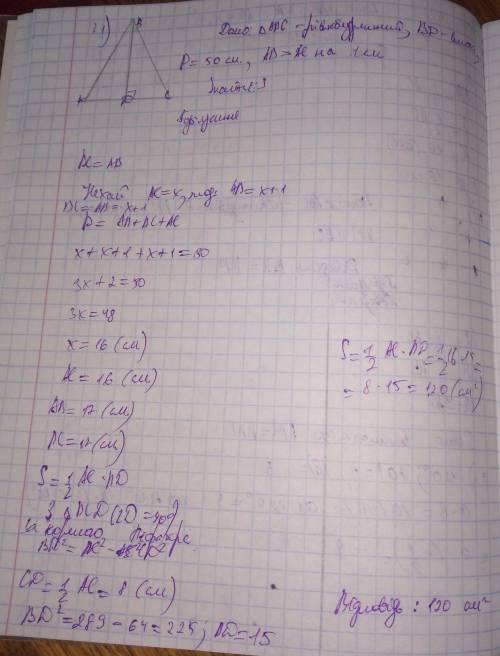 21)
B
A D C
Дано: △ABC - рівнобедрений, BD - вис.,
P = 50 см, AB > AC на 1 см
Знайти: S
BC = AB
Нехай AC = x, тоді AB = x+1
BC = AB = x+1
P = AB + BC + AC
x + x+1 + x+1 = 50
3x + 2 = 50
3x = 48
x = 16 (см)
AC = 16 (см)
AB = 17 (см)
BC = 17 (см)
S = 1/2 AC · BD
З △BCD (∠D = 90°)
за теоремою Піфагора
BD² = BC² - DC²
CD = 1/2 AC = 8 (см)
BD² = 289 - 64 = 225; BD = 15
S = 1/2 AC · BD = 1/2 16 · 15 =
= 8 · 15 = 120 (см²)
Відповідь: 120 см²